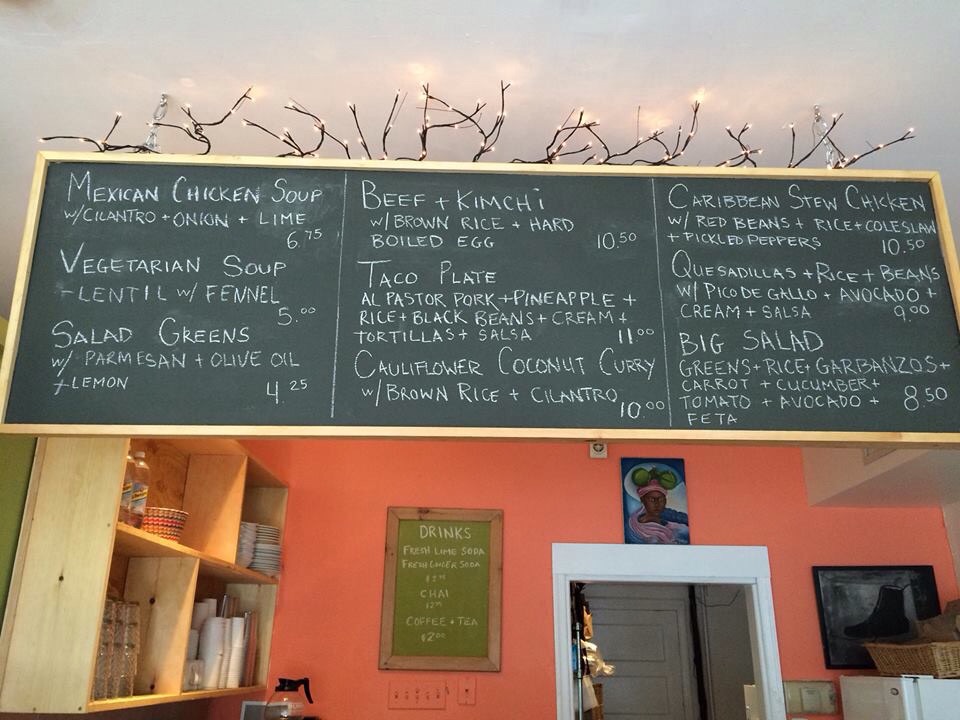 MEXICAN CHICKEN SOUP
W/CILANTRO + ONION + LIME
6.75
VEGETARIAN SOUP
-LENTIL W/ FENNEL
5.00
SALAD GREENS
W/ PARMESAN + OLIVE OIL
+LEMON
4.25
BEEF + KIMCHI
W/ BROWN RICE + HARD
BOILED EGG 10.50
TACO PLATE
AL PASTOR PORK+PINEAPPLE +
RICE+ BLACK BEANS+ CREAM +
TORTILLAS+ SALSA 11.00
CAULIFLOWER COCONUT CURRY
W/ BROWN RICE + CILANTRO
10.00
CARIBBEAN STEW CHICKEN
W/ RED BEANS + RICE+COLESLAW
+ PICKLED PEPPERS 10.50
QUESADILLAS + RICE + BEANS
W/ PICO DE GALLO + AVOCADO +
CREAM + SALSA 9.00
BIG SALAD
GREENS+ RICE+ GARBANZOS+
CARROT + CUCUMBER+
TOMATO + AVOCADO + 8.50
FETA
DRINKS
FRESH LIME SODA
FRESH GINGER SODA
CHAI
COFFEE + TEA
$2.00